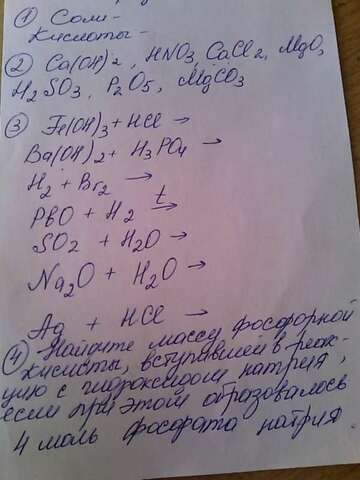 ① Соли-
Кислоты-
② Ca(OH)2, HNO3, CaCl2, MgO,
H2SO3, P2O5, MgCO3
③ Fe(OH)3 + HCl →
Ba(OH)2 + H3PO4 →
H2 + Br2 →
PbO + H2 t→
SO2 + H2O →
Na2O + H2O →
Ag + HCl →
④ Найдите массу фосфорной
кислоты, вступившей в реак-
цию с гидроксидом натрия,
если при этом образовалось
4 моль фосфата натрия.